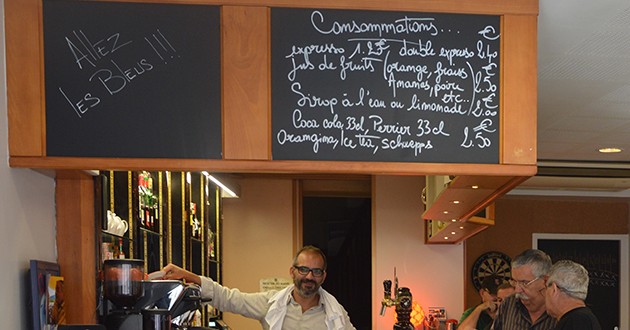 Allez
les Bleus !!!
Consommations...
€
expresso 1.25€ double expresso 2.40
jus de fruits (orange, fraise €
Ananas, poire 2.50
etc...
Sirop à l'eau ou limonade: €
2.00
Coca cola, 33cl, Perrier 33cl €
Orangina, Ice Tea, schwepps 2.50